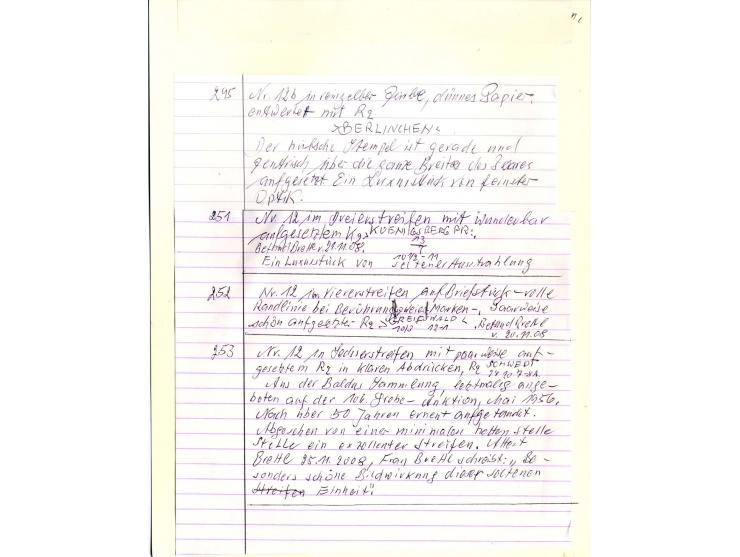 295 Nr. 12b in
dünnes Papier.
entwertet mit R2
>BERLINCHEN<
Der hübsche Stempel ist gerade und
zentrisch über die ganze Breite des Paares
aufgesetzt Ein Luxusstück von feinster
Optik.
251 Nr. 12 im Dreierstreifen mit wunderbar
aufgesetztem K2 >KOENIGSBERG PR:,
Befund Brettl v. 21.11.08. 13/7
Ein Luxusstück von 10 1/2 - 11
seltener Ausstrahlung
252 Nr. 12 im Viererstreifen auf Briefstück - volle
Randlinie bei Berührung zweier Marken -, paarweise
schön aufgesetzter R2 >GREIFSWALD<. Befund Brettl
10/2 12-1 v. 20.11.08
253 Nr. 12 in Sechserstreifen mit paarweise auf-
gesetztem R2 in klaren Abdrücken, R2 SCHWEDT
Aus der Baldus Sammlung, letztmalig ange-
boten auf der 106. Grobe-Auktion, Mai 1956.
Nach über 50 Jahren erneut aufgetaucht.
Abgesehen von einer minimalen hellen Stelle
Stelle ein exzellenter Streifen. Attest
Brettl 25.11.2008, Frau Brettl schreibt: „Be-
sonders schöne Bildwirkung dieser seltenen
Streifen Einheit".